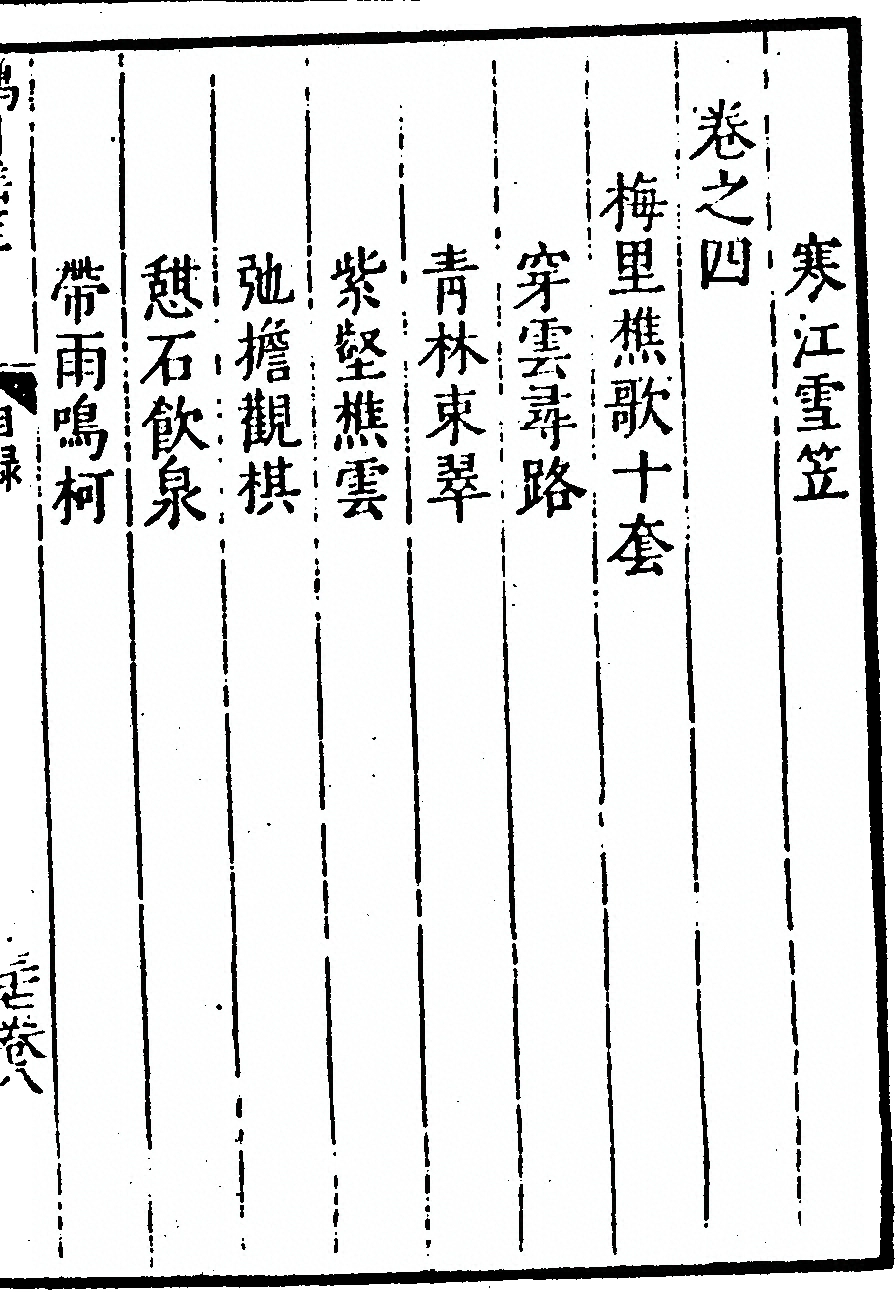 寒江雪笠
卷之四
梅里樵歌十套
穿雲尋路
青林束翠
紫壑樵雲
弛擔觀棋
憇石飲泉
帶雨鳴柯
目録